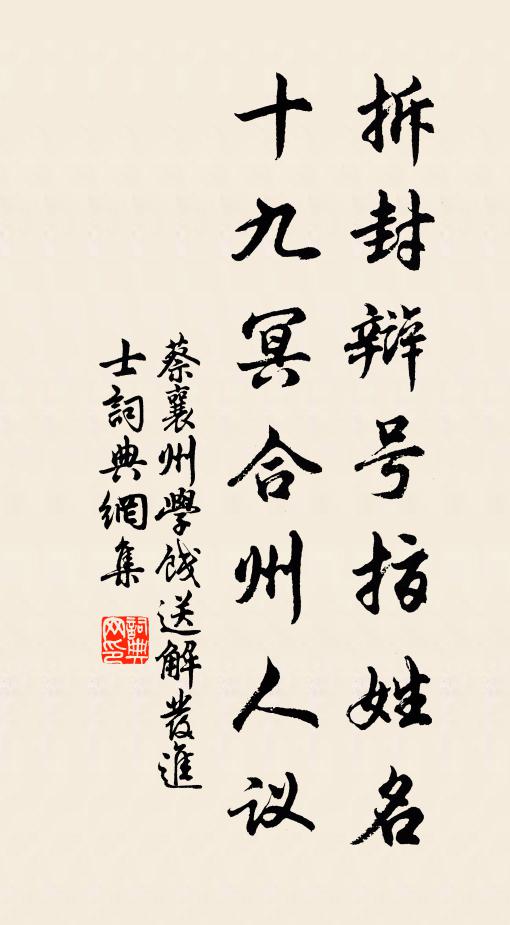 拆封辯号指姓名
十九冥合州人议
蔡襄州學餞送解發進
士詞典網集
詞典
网印